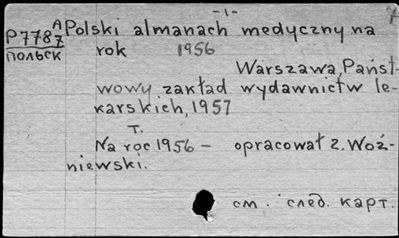 -1-
7
А
Р7787 Polski almanach medyczny na
ПОЛЬСК rok 1956
Warszawa, Państ-
wowy zakład wydawnictw le-
karskich, 1957
T.
Na roc 1956 – opracował Z. Woź-
niewski.
см. след. карт.